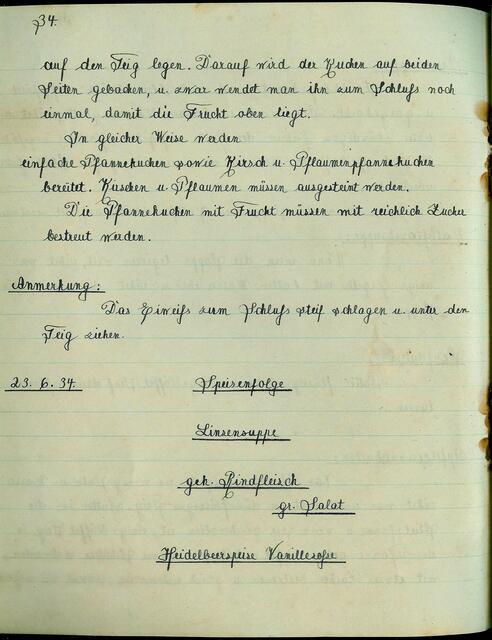 34.
auf den Teig legen. Darauf wird der Kuchen auf beiden
Seiten gebacken, u. zwar wendet man ihn zum Schluß noch
einmal, damit die Frucht oben liegt.
In gleicher Weise werden
einfache Pfannekuchen sowie Kirsch u. Pflaumenpfannekuchen
bereitet. Kirschen u. Pflaumen müssen ausgesteint werden.
Die Pfannekuchen mit Frucht müssen mit reichlich Zucker
bestreut werden.
Anmerkung:
Das Eiweiß zum Schluß steif schlagen u. unter den
Teig ziehen.
23. 6. 34. Speisenfolge
Linsensuppe
gek. Rindfleisch
gr. Salat
Heidelbeerspeise Vanillesoße